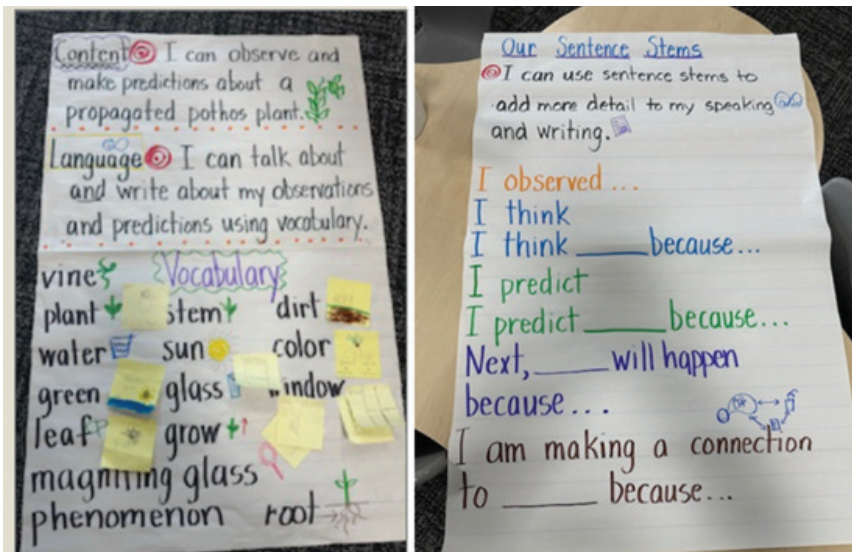 Content I can observe and
make predictions about a
propagated pothos plant.
Language I can talk about
and write about my observations
and predictions using vocabulary.
Vocabulary
vine
plant stem dirt
water sun color
green glass window
leaf grow
magnifing glass
phenomenon root
Our Sentence Stems
I can use sentence stems to
add more detail to my speaking
and writing.
I observed ...
I think
I think ______ because...
I predict
I predict ______ because...
Next, ______ will happen
because...
I am making a connection
to ______ because...